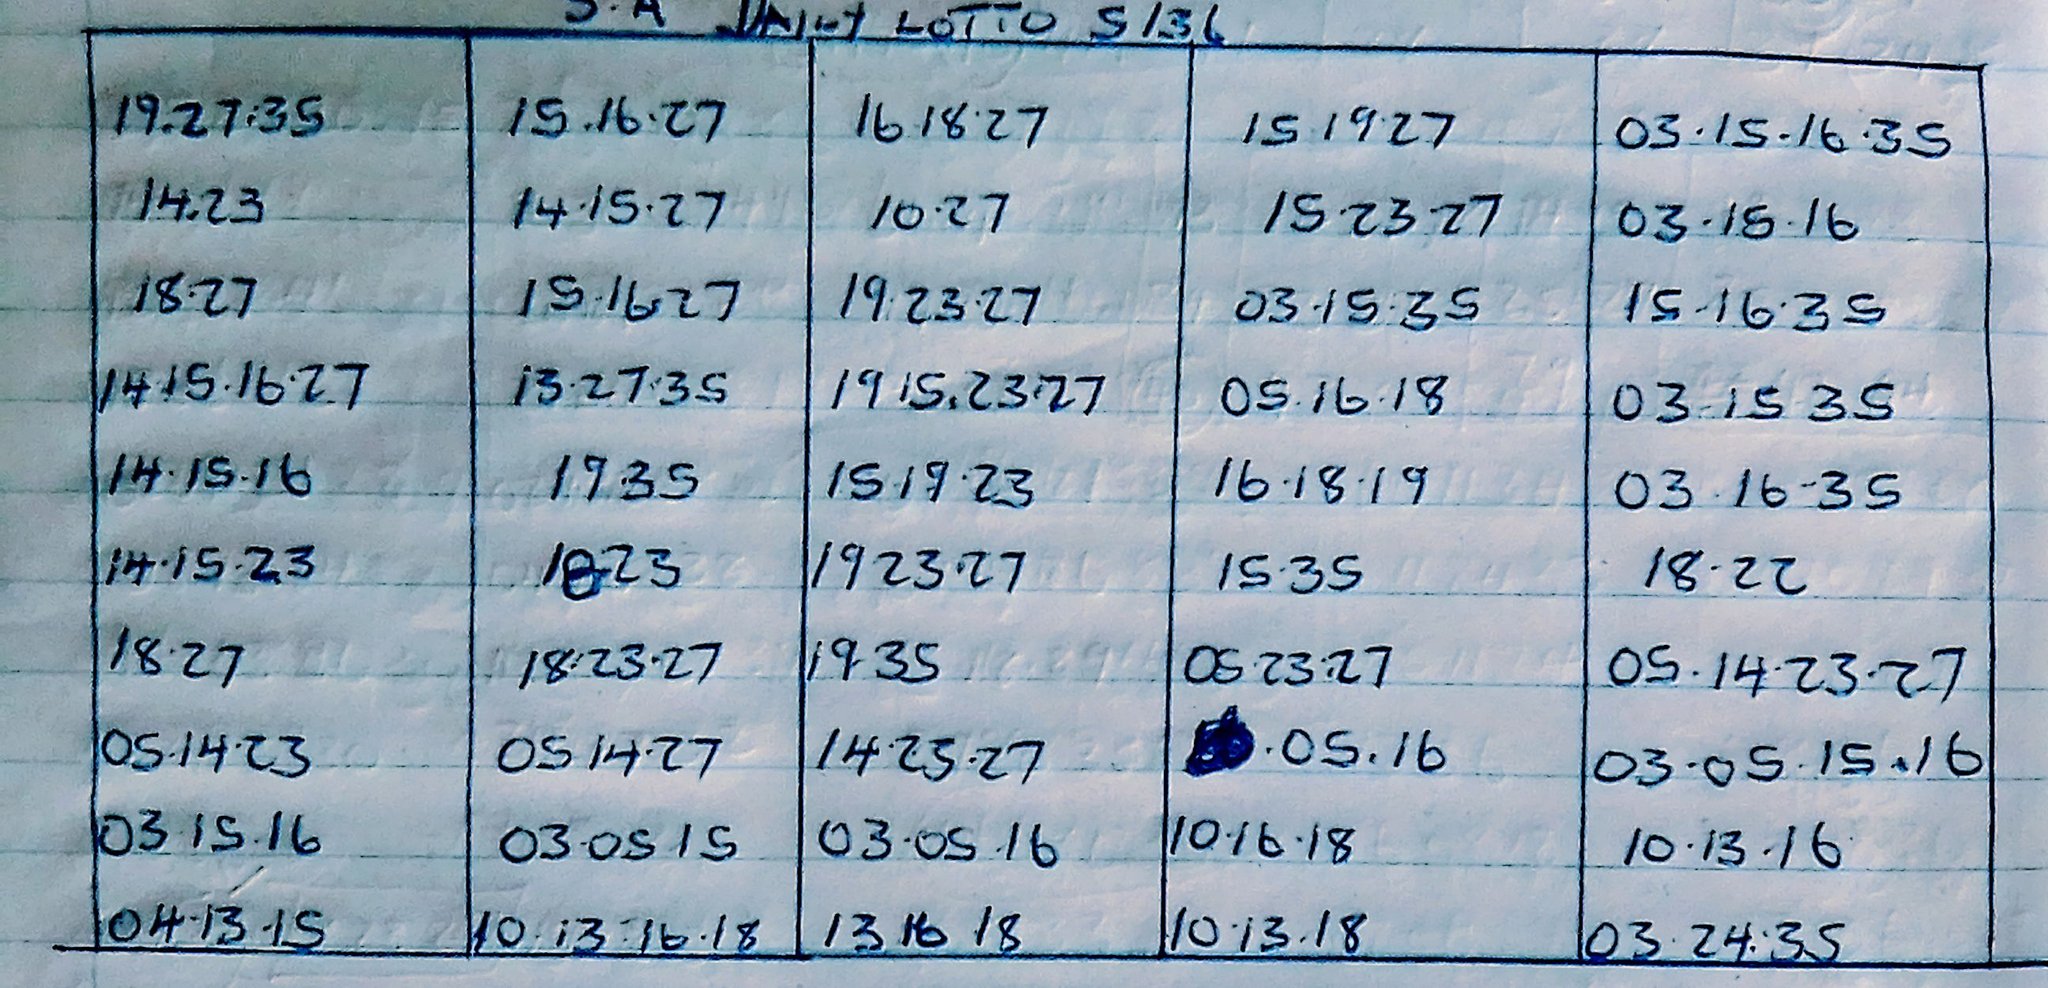 S.A DAILY LOTTO 5/36
19.27.35 15.16.27 16 18.27 15 19.27 03.15.16.35
14.23 14.15.27 10.27 15 23.27 03.15.16
18.27 15.16.27 19.23.27 03.15.35 15.16.35
14.15.16.27 13.27.35 19 15.23.27 05.16.18 03.15 35
14.15.16 19.35 15 19.23 16.18.19 03.16-35
14.15.23 23 19 23.27 15.35 18.22
18.27 18.23.27 19 35 05 23.27 05.14.23.27
05.14.23 05 14.27 14.23.27 .05.16 03.05.15.16
03.15.16 03.05 15 03.05.16 10.16.18 10.13.16
04.13.15 10.13.16.18 13 16 18 10.13.18 03.24.35